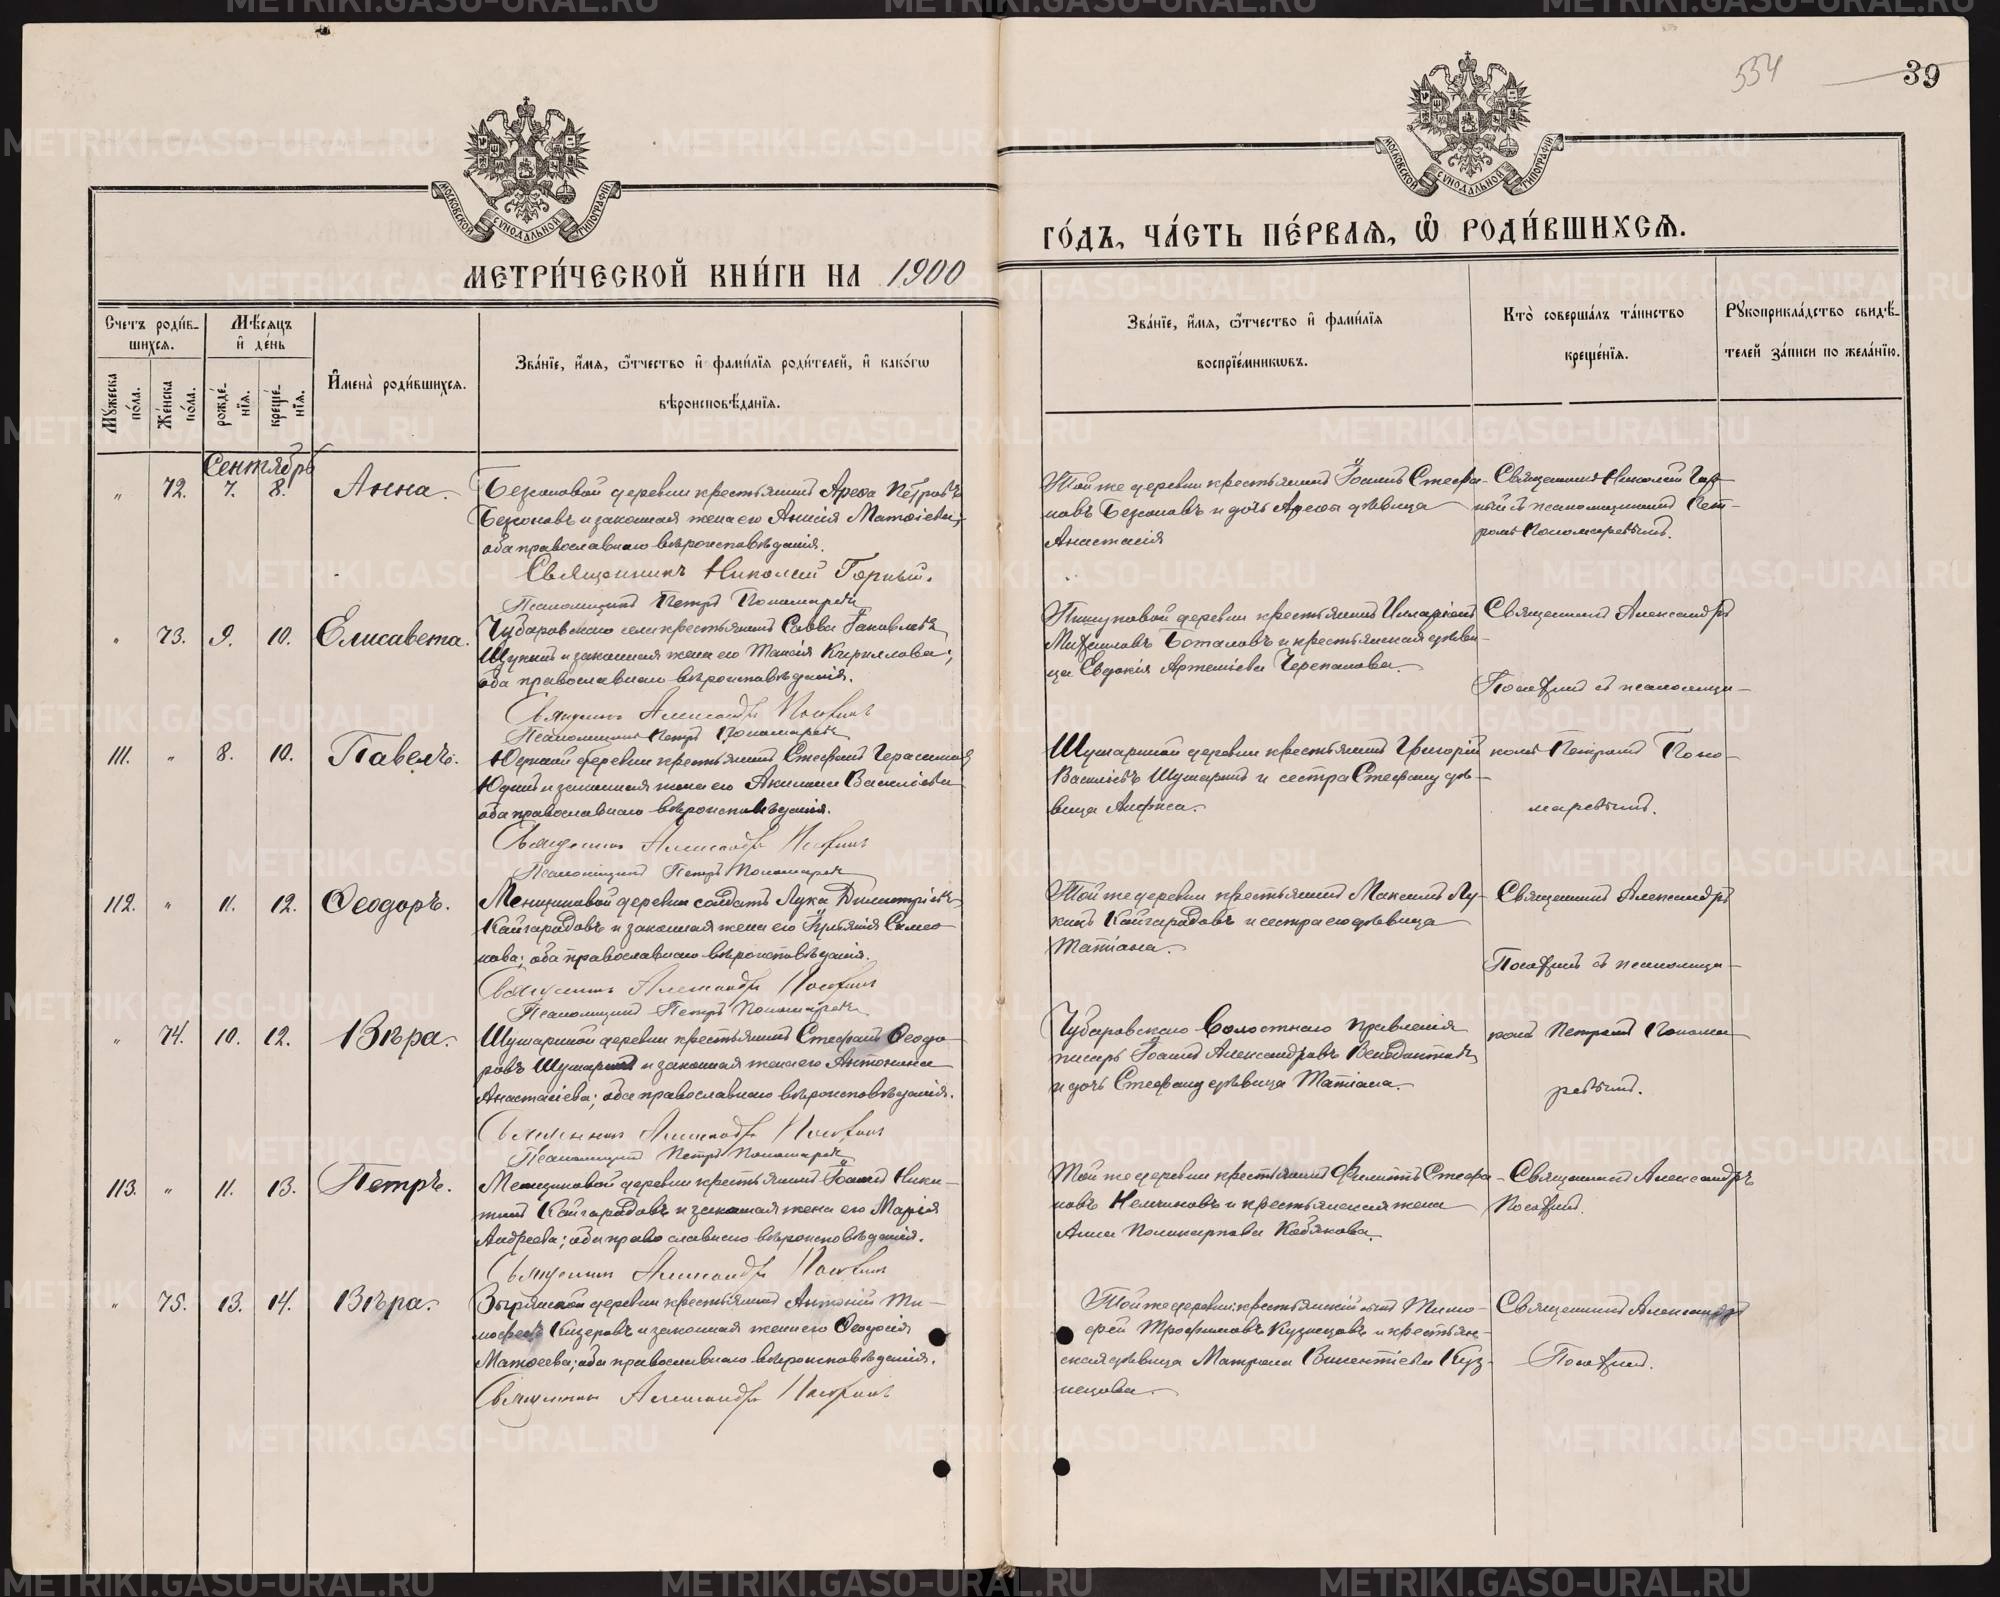 554
39
МОСКОВСКОЙ СѴНОДАЛЬНОЙ ТИПОГРАФІИ
МОСКОВСКОЙ СѴНОДАЛЬНОЙ ТИПОГРАФІИ
МЕТРИ́ЧЕСКОЙ КНИ́ГИ НА 1900
ГО́ДЪ, ЧА́СТЬ ПЕ́РВАѦ, Ѡ҆ РОДИ́ВШИХСѦ.
Счетъ роди́в-
шихсѧ.
Мꙋжеска по́ла.
Же́нска по́ла.
Мѣ́сѧцъ
и҆ де́нь
рожде́-
нїѧ.
креще́-
нїѧ.
И҆мена̀ роди́вшихсѧ.
Зва́нїе, и҆́мѧ, ѻ҆́тчество и҆ фами́лїѧ роди́телей, и҆ како́гѡ
вѣроисповѣ́данїѧ.
Зва́нїе, и҆́мѧ, ѻ҆́тчество и҆ фами́лїѧ
воспрїе́мниковъ.
Кто̀ соверша́лъ та́инство
креще́нїѧ.
Рꙋкоприкла́дство свидѣ́-
телей за́писи по жела́нїю.
Сентябрь
" 72. 7. 8. Анна.
Безсоновой деревни крестьянинъ Арефа Петровъ
Безсоновъ и законная жена его Анисія Матѳіева;
оба православнаго вѣроисповѣданія.
Священникъ Николай Горный.
Псаломщикъ Петръ Пономаревъ
Той же деревни крестьянинъ Іоаннъ Стефа-
новъ Безсоновъ и дочь Арефы дѣвица
Анастасія
Священникъ Николай Гор-
ный съ псаломщикомъ Пет-
ромъ Пономаревымъ.
" 73. 9. 10. Елисавета.
Чубаровскаго села крестьянинъ Савва Іаковлевъ
Щукинъ и законная жена его Таисія Кириллова;
оба православнаго вѣроисповѣданія.
Священникъ Александръ
Псаломщикъ Петръ Пономаревъ
деревни крестьянинъ Иларіонъ
Михаиловъ Боталовъ и крестьянская дѣви-
ца Евдокія Артеміева Черепанова.
Священникъ Александръ
съ псаломщи-
111. " 8. 10. Павелъ.
Юдиной деревни крестьянинъ Стефанъ Герасимовъ
Юдинъ и законная жена его Акилина Василіева
оба православнаго вѣроисповѣданія.
Священникъ Александръ
Псаломщикъ Петръ Пономаревъ
Шушариной деревни крестьянинъ Григорій
Василіевъ Шушаринъ и сестра Стефану дѣ-
вица Анфиса.
комъ Петромъ Поно-
маревымъ.
112. " 11. 12. Ѳеодоръ.
Меньщиковой деревни солдатъ Лука Димитріевъ
Кайгородовъ и законная жена его Іуліанія Симео-
нова; оба православнаго вѣроисповѣданія.
Священникъ Александръ
Псаломщикъ Петръ Пономаревъ
Той же деревни крестьянинъ Максимъ Лу-
кинъ Кайгородовъ и сестра его дѣвица
Татіана.
Священникъ Александръ
съ псаломщи-
" 74. 10. 12. Вѣра.
Шушариной деревни крестьянинъ Стефанъ Ѳеодо-
ровъ Шушаринъ и законная жена его Антонина
Анастасіева; оба православнаго вѣроисповѣданія.
Священникъ Александръ
Псаломщикъ Петръ Пономаревъ
Чубаровскаго Волостнаго Правленія
писарь Іоаннъ Александровъ
и дочь Стефану дѣвица Татіана.
комъ Петромъ Понома-
ревымъ.
113. " 11. 13. Петръ.
Меньщиковой деревни крестьянинъ Іоаннъ Ники-
тинъ Кайгородовъ и законная жена его Марія
Андреева; оба православнаго вѣроисповѣданія.
Священникъ Александръ
Той же деревни крестьянинъ Филиппъ Стефа-
новъ и крестьянская жена
Анна Поликарпова Кобякова.
Священникъ Александръ
" 75. 13. 14. Вѣра.
Зырянской деревни крестьянинъ Антоній Ти-
мофеевъ и законная жена его Ѳеодосія
Матѳеева; оба православнаго вѣроисповѣданія.
Священникъ Александръ
Той же деревни крестьянскій сынъ Тимо-
фей Трофимовъ Кузнецовъ и крестьян-
ская дѣвица Матрона Викентіева Куз-
нецова.
Священникъ Александръ
METRIKI.GASO-URAL.RU